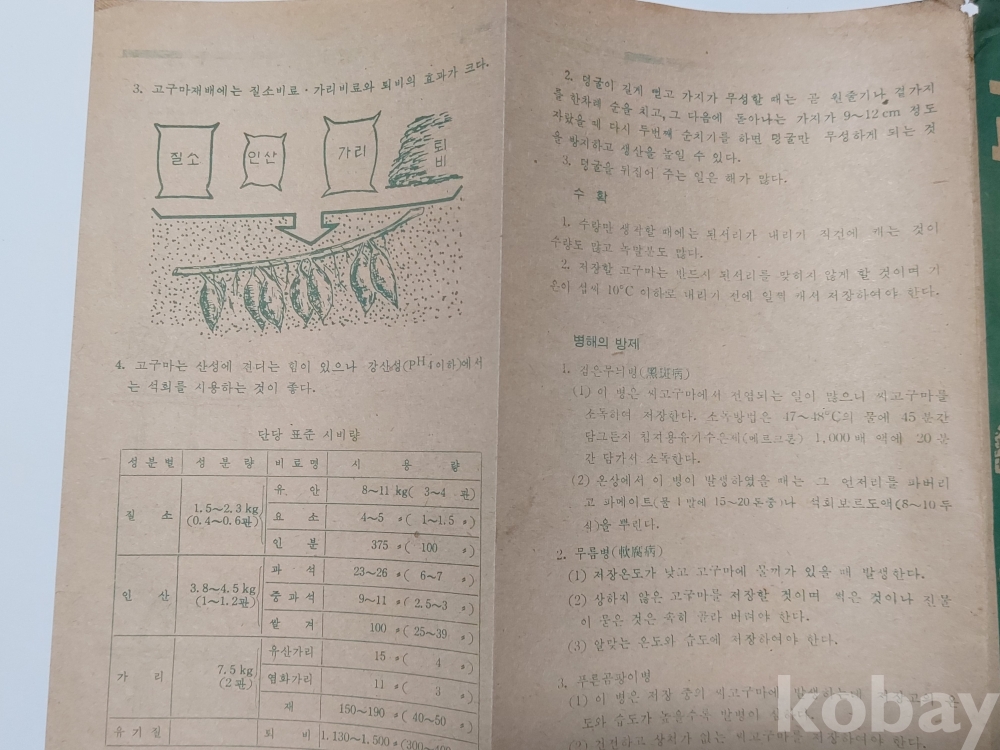 3. 고구마재배에는 질소비료·가리비료와 퇴비의 효과가 크다.
질소
인산
가리
퇴비
4. 고구마는 산성에 견디는 힘이 있으나 강산성(pH 4이하)에서
는 석회를 시용하는 것이 좋다.
단당 표준 시비량
성분별 성분량 비료명 시용량
질소 1.5～2.3 kg (0.4～0.6관) 유안 8～11 kg( 3～4 관)
요소 4～5 〃( 1～1.5 〃)
인분 375 〃( 100 〃)
인산 3.8～4.5 kg (1～1.2관) 과석 23～26 〃( 6～7 〃)
중과석 9～11 〃( 2.5～3 〃)
쌀겨 100 〃( 25～39 〃)
가리 7.5 kg (2관) 유산가리 15 〃( 4 〃)
염화가리 11 〃( 3 〃)
재 150～190 〃( 40～50 〃)
유기질 퇴비 1.130～1.500 〃(300～400
2. 덩굴이 길게 뻗고 가지가 무성할 때는 곧 원줄기나 곁가지
를 한차례 순을 치고, 그 다음에 돋아나는 가지가 9～12cm 정도
자랐을 때 다시 두번째 순치기를 하면 덩굴만 무성하게 되는 것
을 방지하고 생산을 높일 수 있다.
3. 덩굴을 뒤집어 주는 일은 해가 많다.
수 확
1. 수량만 생각할 때에는 된서리가 내리기 직전에 캐는 것이
수량도 많고 녹말분도 많다.
2. 저장할 고구마는 반드시 된서리를 맞히지 않게 할 것이며 기
온이 섭씨 10°C 이하로 내리기 전에 일찍 캐서 저장하여야 한다.
병해의 방제
1. 검은무늬병(黑斑病)
(1) 이 병은 씨고구마에서 전염되는 일이 많으니 씨고구마를
소독하여 저장한다. 소독방법은 47～48°C의 물에 45 분간
담그든지 침적용유기수은제(메르크론) 1,000배 액에 20 분
간 담가서 소독한다.
(2) 온상에서 이 병이 발생하였을 때는 그 언저리를 파버리
고 파메이트(물 1말에 15～20돈중)나 석회보르도액(8～10두
식)을 뿌린다.
2. 무름병(軟腐病)
(1) 저장온도가 낮고 고구마에 물끼가 있을 때 발생한다.
(2) 상하지 않은 고구마를 저장할 것이며 썩은 것이나 진물
이 묻은 것은 속히 골라 버려야 한다.
(3) 알맞는 온도와 습도에 저장하여야 한다.
3. 푸른곰팡이병
(1) 이 병은 저장 중의 씨고구마에 발생하는데
도와 습도가 높을수록 발병이
(2) 건전하고 상처가 없는 씨고구마를 저장하여야 한다.
kobay